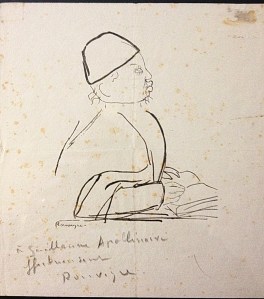 Rouveyre
à Guillaume Apollinaire
affectueusement
Rouveyre